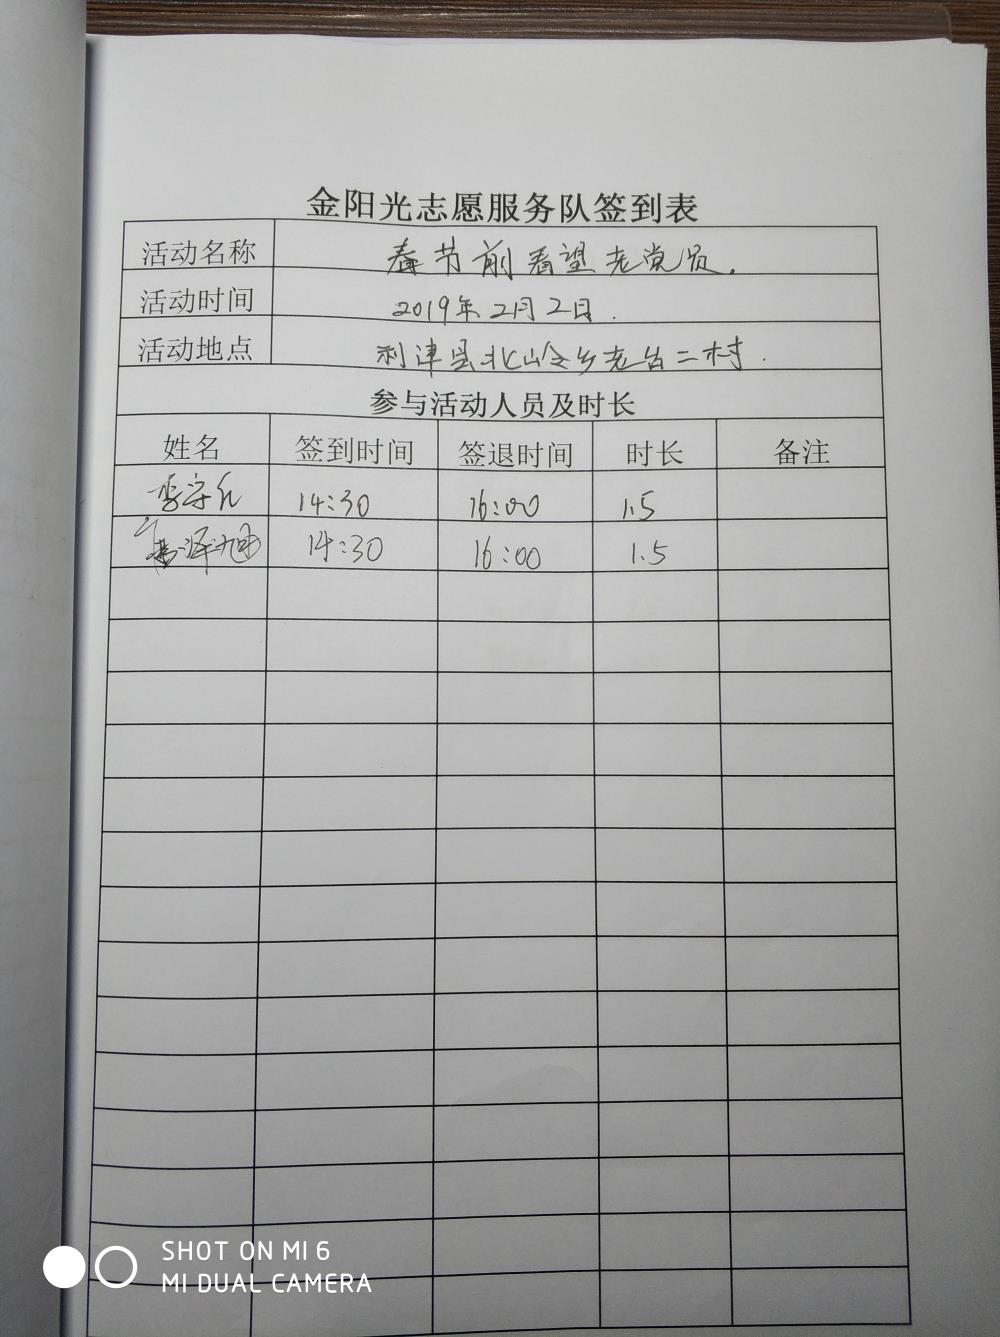 金阳光志愿服务队签到表
活动名称 春节前看望老党员.
活动时间 2019年2月2日.
活动地点 利津县北岭乡老台二村.
参与活动人员及时长
姓名 签到时间 签退时间 时长 备注
李 14:30 16:00 1.5
泽旭 14:30 16:00 1.5
SHOT ON MI 6
MI DUAL CAMERA